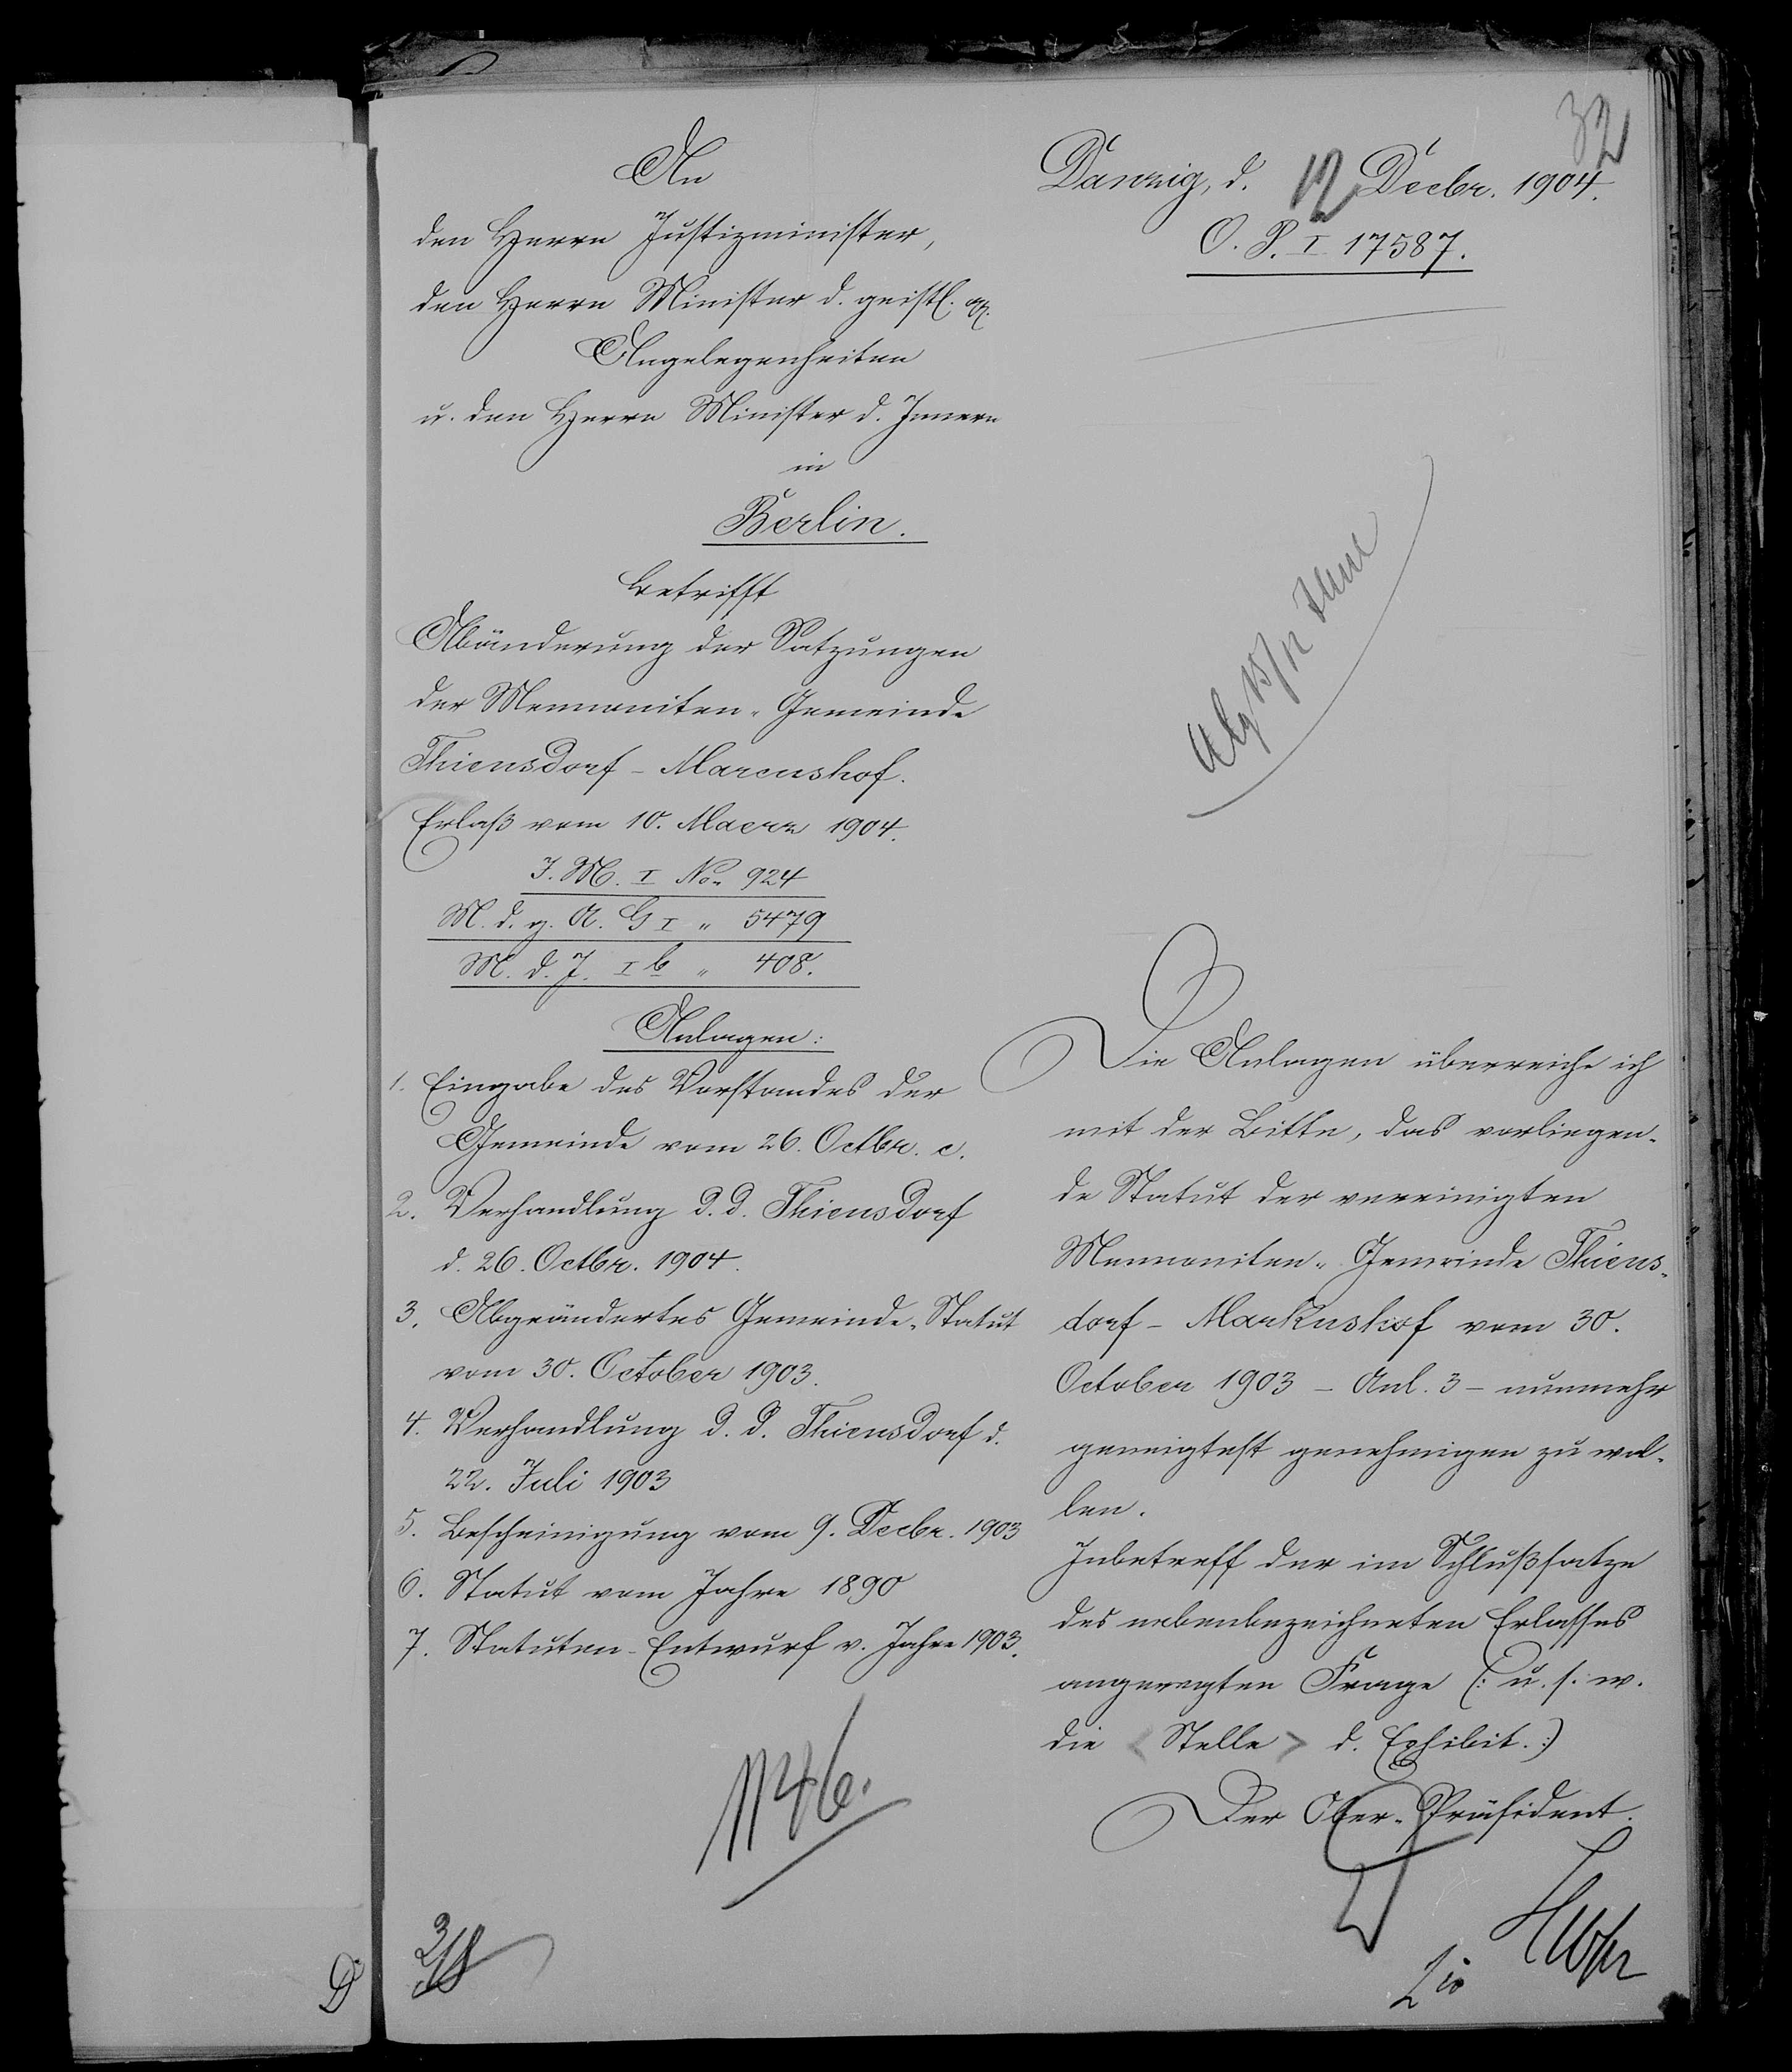 32
An
den Herrn Justizminister,
den Herrn Minister d. geistl. pp.
Angelegenheiten
u. den Herrn Minister d. Innern
in
Berlin.
Betrifft
Abänderung der Satzungen
der Mennoniten-Gemeinde
Thiensdorf - Marcushof.
Erlaß vom 10. Maerz 1904.
J. M. I No. 924
M. d. g. A. G I " 5479
M. d. J. I b " 408.
Anlagen:
1. Eingabe des Vorstandes der
Gemeinde vom 26. Octbr. c.
2. Verhandlung d. d. Thiensdorf
d. 26. Octbr. 1904.
3. Abgeändertes Gemeinde-Statut
vom 30. October 1903.
4. Verhandlung d. d. Thiensdorf d.
22. Juli 1903
5. Bescheinigung vom 9. Decbr. 1903
6. Statut vom Jahre 1890
7. Statuten-Entwurf v. Jahre 1903.
Danzig, d. 12 Decbr. 1904.
O. P. I 17587.
Die Anlagen überreiche ich
mit der Bitte, das vorliegen-
de Statut der vereinigten
Mennoniten-Gemeinde Thiens-
dorf - Markushof vom 30.
October 1903 - Anl. 3 - nunmehr
geneigtest genehmigen zu wol-
len.
Inbetreff der im Schlußsatze
des nebenbezeichneten Erlasses
angeregten Frage (: u. s. w.
die < Stelle > d. Exhibit. :)
Der Ober-Präsident.